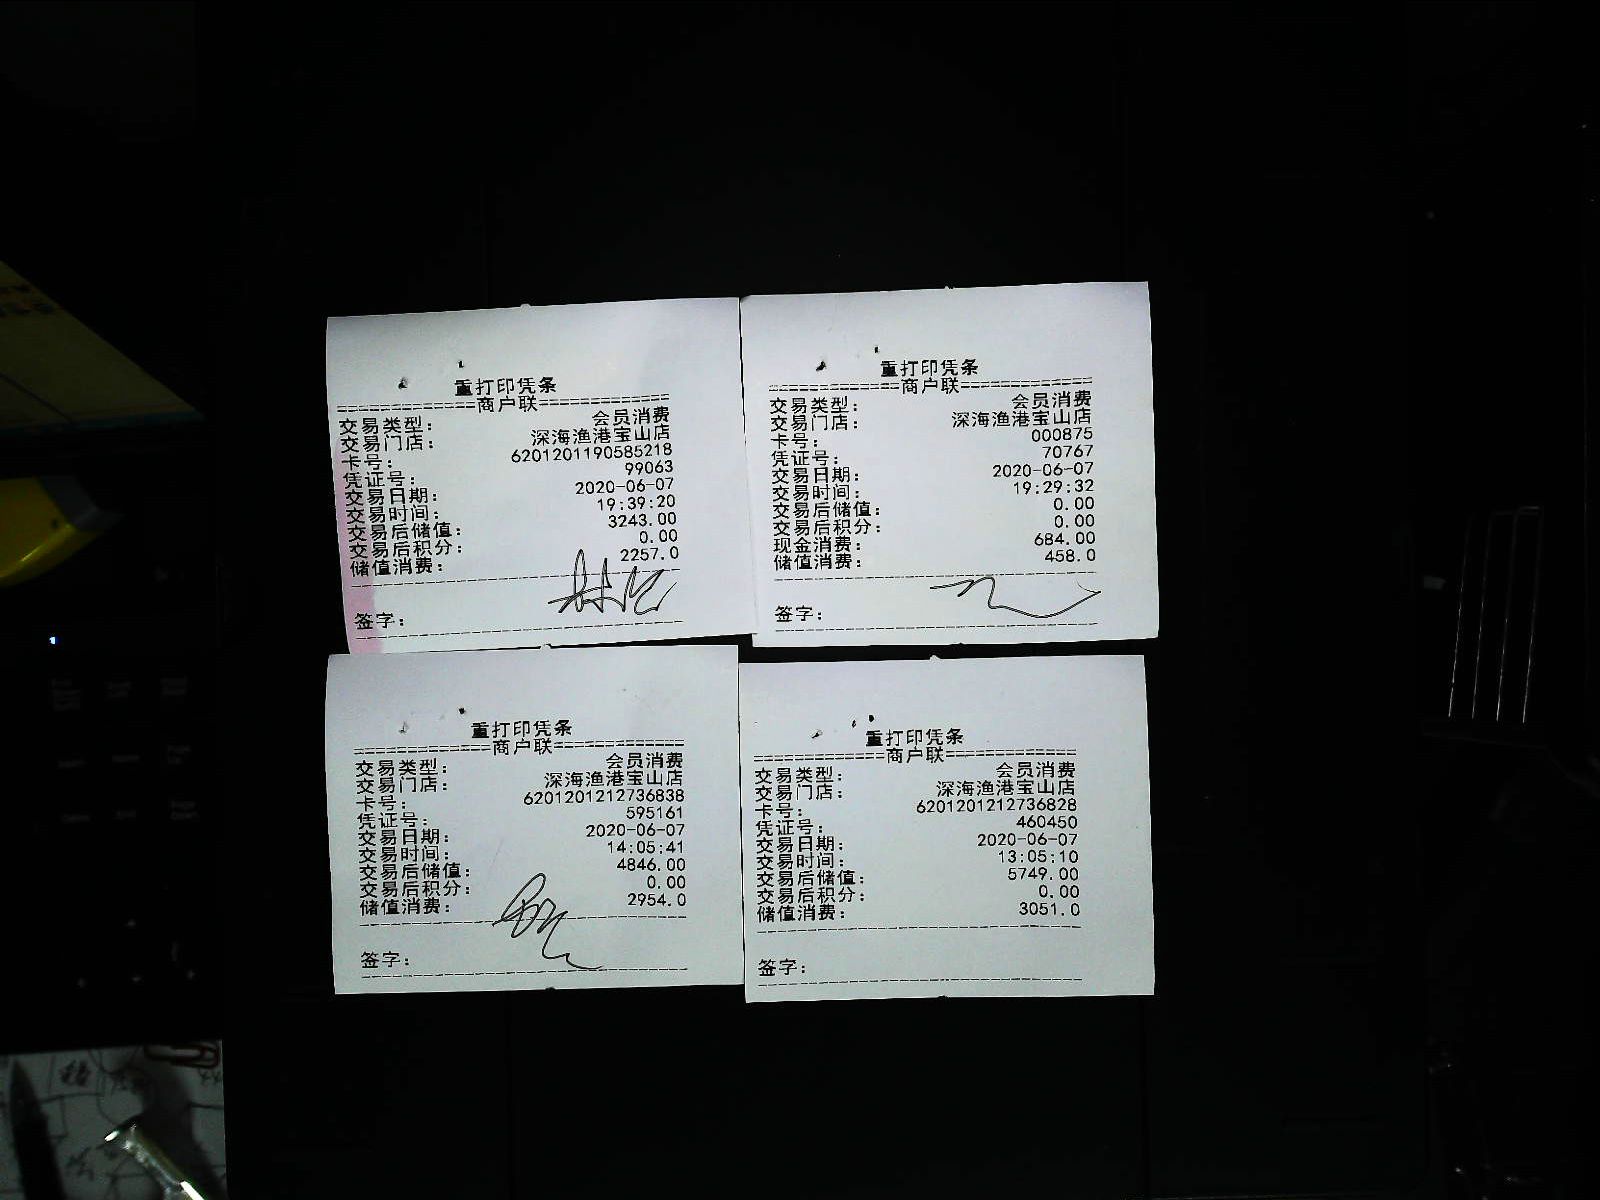 重打印凭条
================商户联================
交易类型: 会员消费
交易门店: 深海渔港宝山店
卡号: 6201201190585218
凭证号: 99063
交易日期: 2020-06-07
交易时间: 19:39:20
交易后储值: 3243.00
交易后积分: 0.00
储值消费: 2257.0
签字:
重打印凭条
================商户联================
交易类型: 会员消费
交易门店: 深海渔港宝山店
卡号: 000875
凭证号: 70767
交易日期: 2020-06-07
交易时间: 19:29:32
交易后储值: 0.00
交易后积分: 0.00
现金消费: 684.00
储值消费: 458.0
签字:
重打印凭条
================商户联================
交易类型: 会员消费
交易门店: 深海渔港宝山店
卡号: 6201201212736838
凭证号: 595161
交易日期: 2020-06-07
交易时间: 14:05:41
交易后储值: 4846.00
交易后积分: 0.00
储值消费: 2954.0
签字:
重打印凭条
================商户联================
交易类型: 会员消费
交易门店: 深海渔港宝山店
卡号: 6201201212736828
凭证号: 460450
交易日期: 2020-06-07
交易时间: 13:05:10
交易后储值: 5749.00
交易后积分: 0.00
储值消费: 3051.0
签字: